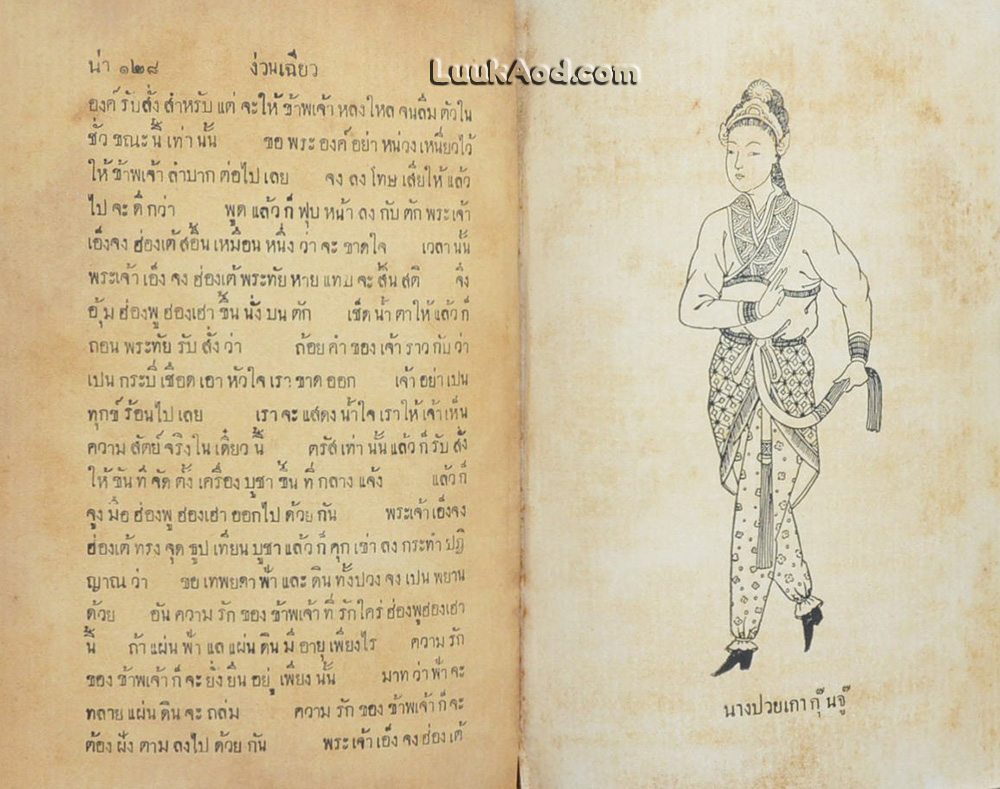 น่า ๑๒๘ ง่วนเฉียว
LuukAod.com
องค์ รับสั่ง สำหรับ แต่ จะให้ ข้าพเจ้า หลงใหล จนลืม ตัวใน
ชั่ว ขณะ นี้ เท่า นั้น ขอ พระ องค์ อย่า หน่วง เหนี่ยวไว้
ให้ ข้าพเจ้า ลำบาก ต่อไป เลย จง ลง โทษ เสียให้ แล้ว
ไป จะ ดี กว่า พูด แล้ว ก็ ฟุบ หน้า ลง กับ ตัก พระเจ้า
เอ็งจง ฮ่องเต้ สอื้น เหมือน หนึ่ง ว่า จะ ขาดใจ เวลา นั้น
พระเจ้า เอ็ง จง ฮ่องเต้ พระทัย หาย แทบ จะ สิ้น สติ จึ่ง
อุ้ม ฮ่องพู ฮ่องเฮ่า ขึ้น นั่ง บน ตัก เช็ด น้ำ ตาให้ แล้ว ก็
ถอน พระทัย รับ สั่ง ว่า ถ้อย คำ ของ เจ้า ราว กับ ว่า
เปน กระบี่ เชือด เอา หัวใจ เรา ขาด ออก เจ้า อย่า เปน
ทุกข์ ร้อน ไป เลย เรา จะ แสดง น้ำใจ เราให้ เจ้า เห็น
ความ สัตย์ จริง ใน เดี๋ยว นี้ ตรัส เท่า นั้น แล้ว ก็ รับ สั่ง
ให้ ขันที จัด ตั้ง เครื่อง บูชา ขึ้น ที่ กลาง แจ้ง แล้ว ก็
จูง มือ ฮ่องพู ฮ่องเฮ่า ออกไป ด้วย กัน พระเจ้า เอ็งจง
ฮ่องเต้ ทรง จุด ธูป เทียน บูชา แล้ว ก็ คุก เข่า ลง กระทำ ปฏิ
ญาณ ว่า ขอ เทพยดา ฟ้า และ ดิน ทั้งปวง จง เปน พยาน
ด้วย อัน ความ รัก ของ ข้าพเจ้า ที่ รักใคร่ ฮ่องพูฮ่องเฮ่า
นี้ ถ้า แผ่น ฟ้า แล แผ่น ดิน มี อายุ เพียงไร ความ รัก
ของ ข้าพเจ้า ก็ จะ ยั่ง ยืน อยู่ เพียง นั้น มาท ว่า ฟ้า จะ
ทลาย แผ่น ดิน จะ ถล่ม ความ รัก ของ ข้าพเจ้า ก็ จะ
ต้อง ฝัง ตาม ลงไป ด้วย กัน พระ เจ้า เอ็ง จง ฮ่อง เต้
นางปวยเกา กุ๊นจู๊